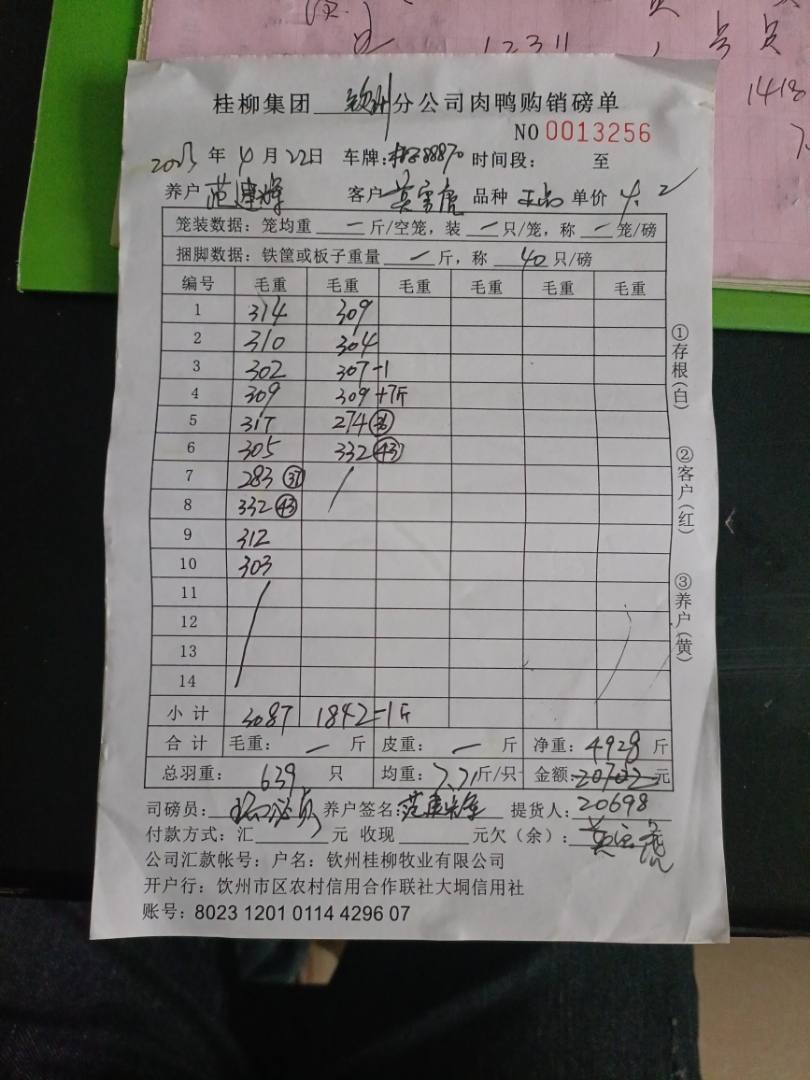 1418
桂柳集团 钦州 分公司肉鸭购销磅单
NO 0013256
2023 年 4 月 22日 车牌: 88870 时间段: 至
养户 范建辉 客户 莫 虎 品种 单价 4.2
笼装数据: 笼均重 一 斤/空笼, 装 一 只/笼, 称 一 笼/磅
捆脚数据: 铁筐或板子重量 一 斤, 称 40 只/磅
编号 毛重 毛重 毛重 毛重 毛重 毛重
1 314 309
2 310 304
3 302 307-1
4 309 309+7斤
5 317 274 36
6 305 332 43
7 283 37
8 332 43
9 312
10 303
11
12
13
14
小计 3087 1842=1斤
合计 毛重: 一 斤 皮重: 一 斤 净重: 4928 斤
总羽重: 639 只 均重: 7.71斤/只 金额: 20702元
司磅员: 养户签名: 范建辉 提货人: 20698
付款方式: 汇 元 收现 元欠(余): 莫 虎
公司汇款帐号: 户名: 钦州桂柳牧业有限公司
开户行: 钦州市区农村信用合作联社大垌信用社
账号: 8023 1201 0114 4296 07
①存根(白)
②客户(红)
③养户(黄)